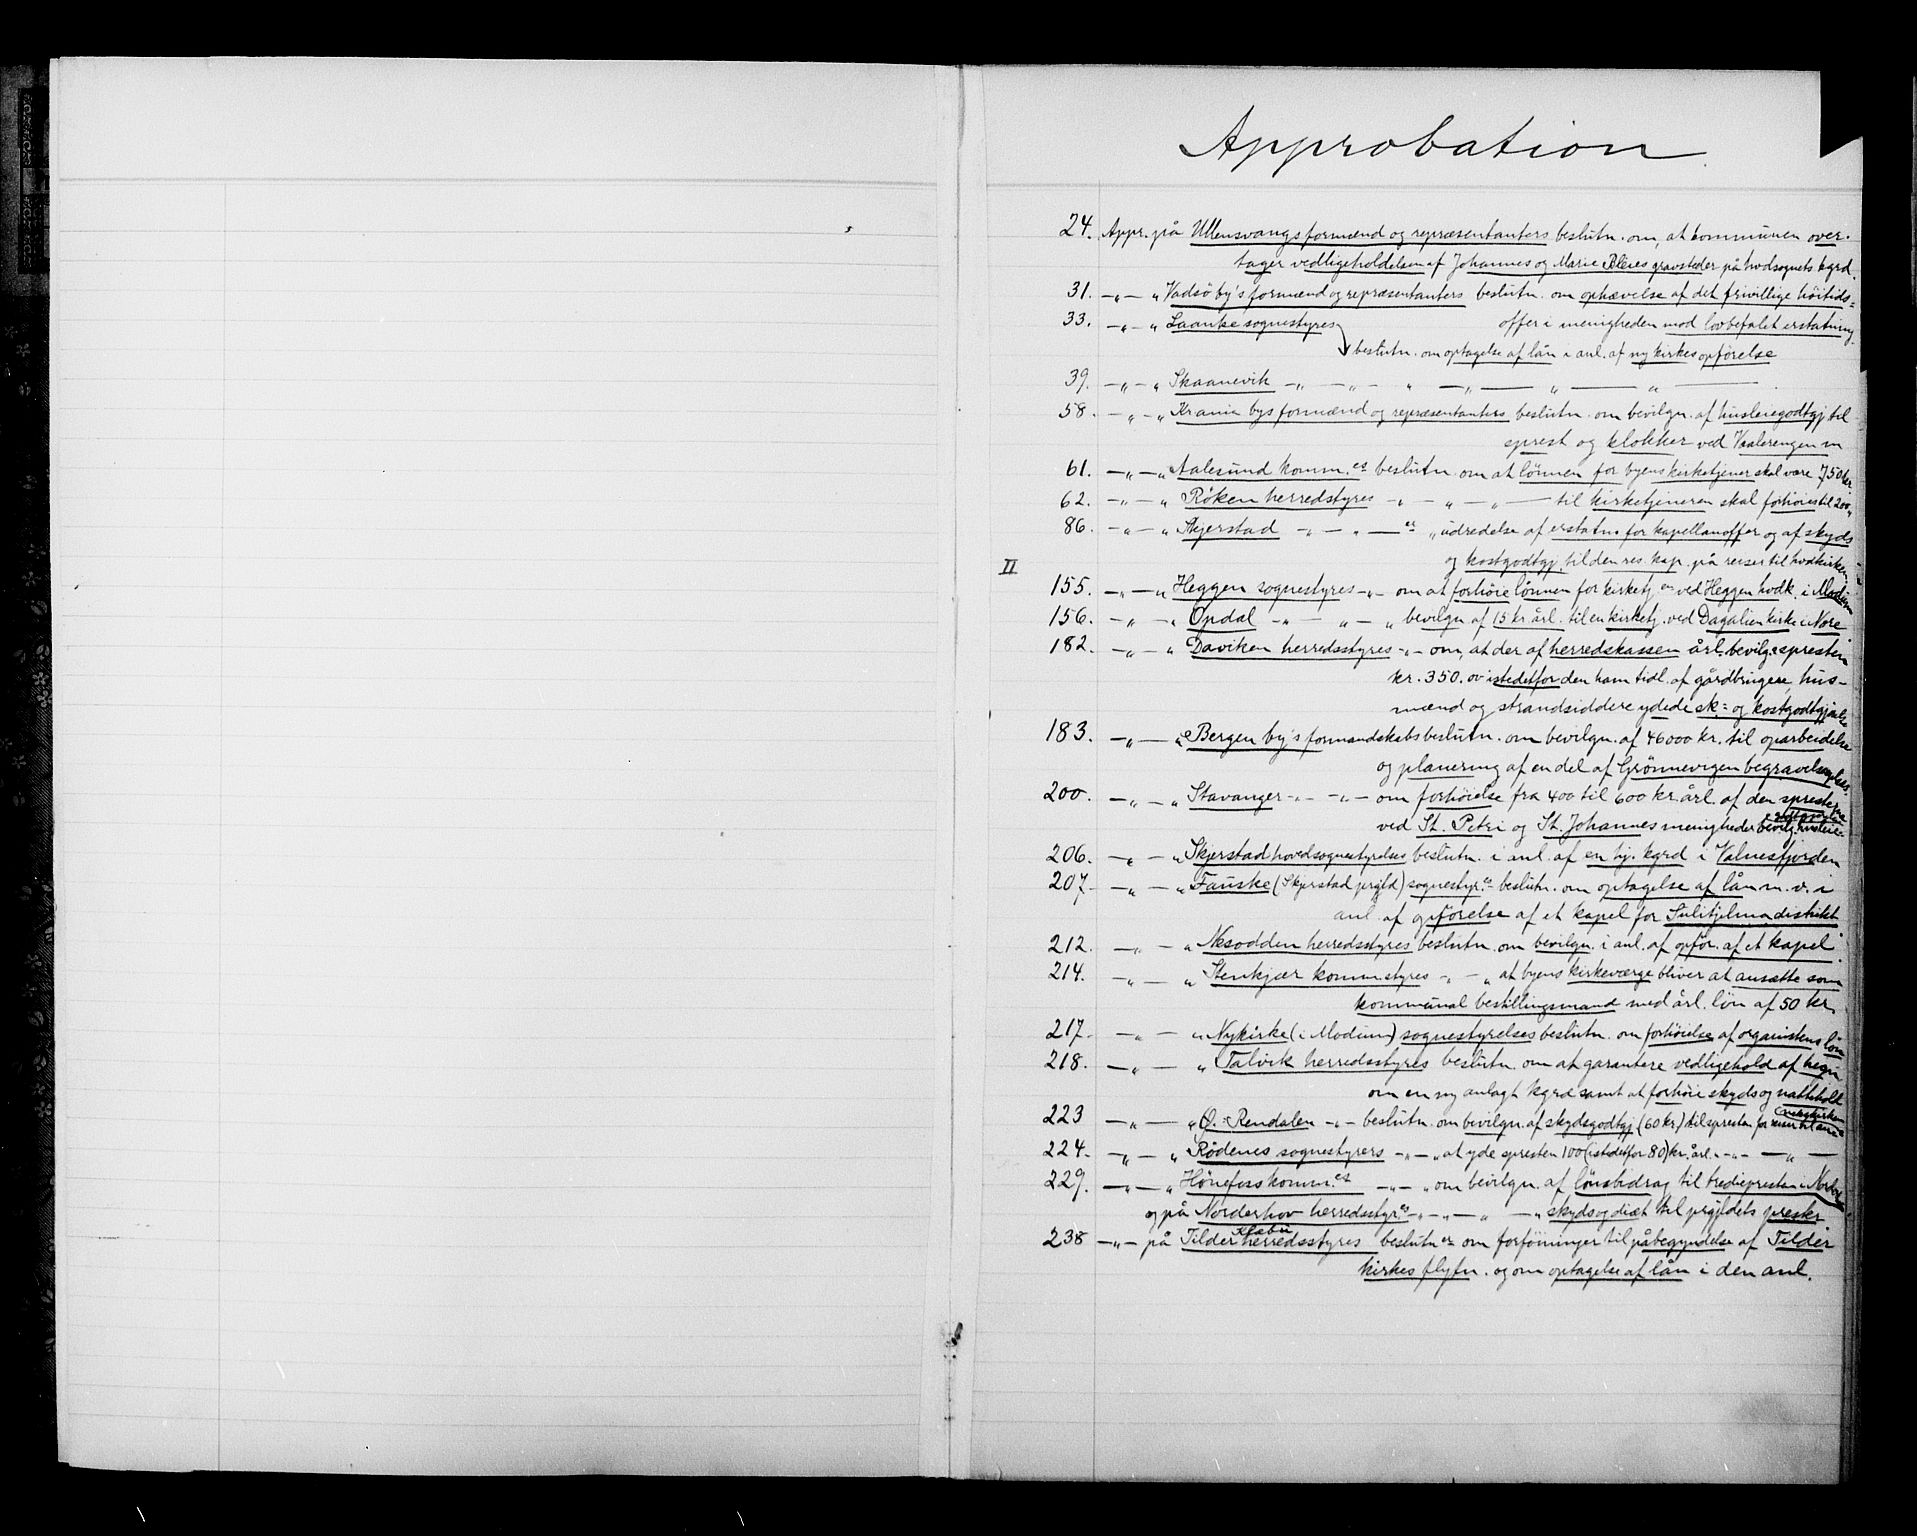 Approbation
24. Appr. på Ullensvangs formænd og repræsentanters beslutn. om, at kommunen over-
tager vedligeholdelsen af Johannes og Marie Bleies gravsteder på hvdsognets kgrd.
31. —„—„ Vadsø by's formænd og repræsentanters beslutn. om ophævelse af det frivillige høitids-
33. —„—„ Laanke sognestyres offer i menigheden mod lovbefalet erstatning
beslutn. om optagelse af lån i anl. af ny kirkes opførelse
39. —„—„ Skaanevik —„— —„— „ —„— „ — „ —
58. —„—„ Krania bys formænd og repræsentanters beslutn. om bevilgn. af husleiegodtgj. til
sprest og klokker ved Vaalerengen m
61. —„—„ Aalesund komm.es beslutn. om at lønnen for byens kirketjener skal være 750 kr
62. —„—„ Røken herredstyres „ — „ — „ — til kirketjeneren skal forhøies til 200„
86. —„—„ Skjerstad —„—„—es „ udredelse af erstatn. for kapellanoffer og af skyds
og kostgodtgj. til den res. kap. på reiser til hvdkirken
II
155. —„—„ Heggen sognestyres —„— om at forhøie lønnen for kirketj.en ved Heggen hvdk. i Modum
156. —„—„ Opdal —„— „ — „ bevilgn af 15 kr årl. til en kirketj. ved Dagalien kirke i Nore
182. —„—„ Daviken herredsstyres —„— om, at der af herredskassen årl. bevilges spresten
kr. 350. ov istedetfor den ham tidl. af gårdbrugere, hus-
mænd og strandsiddere ydede sk.- og kostgodtgjørelse
183. —„—„ Bergen by's formandskabs beslutn. om bevilgn. af 46000 kr. til oparbeidelse
og planering af en del af Grønnevigen begravelsespl.
200. —„—„ Stavanger —„— —„— om forhøielse fra 400 til 600 kr. årl. af den spresterne
ved St. Petri og St. Johannes menigheder bevilg. husleie-
206. —„—„ Skjerstad hovedsognestyrelses beslutn. i anl. af en hj. kgrd i Valnesfjorden
207. —„—„ Fauske (Skjerstad prgjld) sognestyr.es beslutn. om optagelse af lån m. v. i
anl. af opførelse af et kapel for Sulitjelma distrikt
212. —„—„ Nesodden herredsstyres beslutn. om bevilgn. i anl. af opfør. af et kapel.
214. —„—„ Stenkjær kommstyres —„—„ at byens kirkeværge bliver at ansætte som
kommunal bestillingsmand med årl. løn af 50 kr.
217. —„—„ Nykirke (i Modum) sognestyrelses beslutn. om forhøielse af organistens løn
218. —„—„ Talvik herredsstyres beslutn. om at garantere vedligehold af hegn
om en ny anlagt kgrd samt at forhøie skyds og nattehold
223 —„—„ Ø. Rendalen —„— beslutn. om bevilgn. af skydsgodtgj (60 kr.) til spresten for
224. —„—„ Rødenes sognestyrers —„—„ at yde spresten 100 (istedetfor 80) kr. årl. —„— — „ —
229. —„—„ Hønefoss komm.es —„—„ om bevilgn. af lønsbidrag til trediepresten i Norderhov
og på Norderhov herredsstyr.es —„—„— „ —„ skyds og diæt til prgjldets preskr
238 —„— på Tilder Klæbu herredsstyres beslutn.er om forføininger til påbegyndelse af Tilder
kirkes flytn. og om optagelse af lån i den anl.